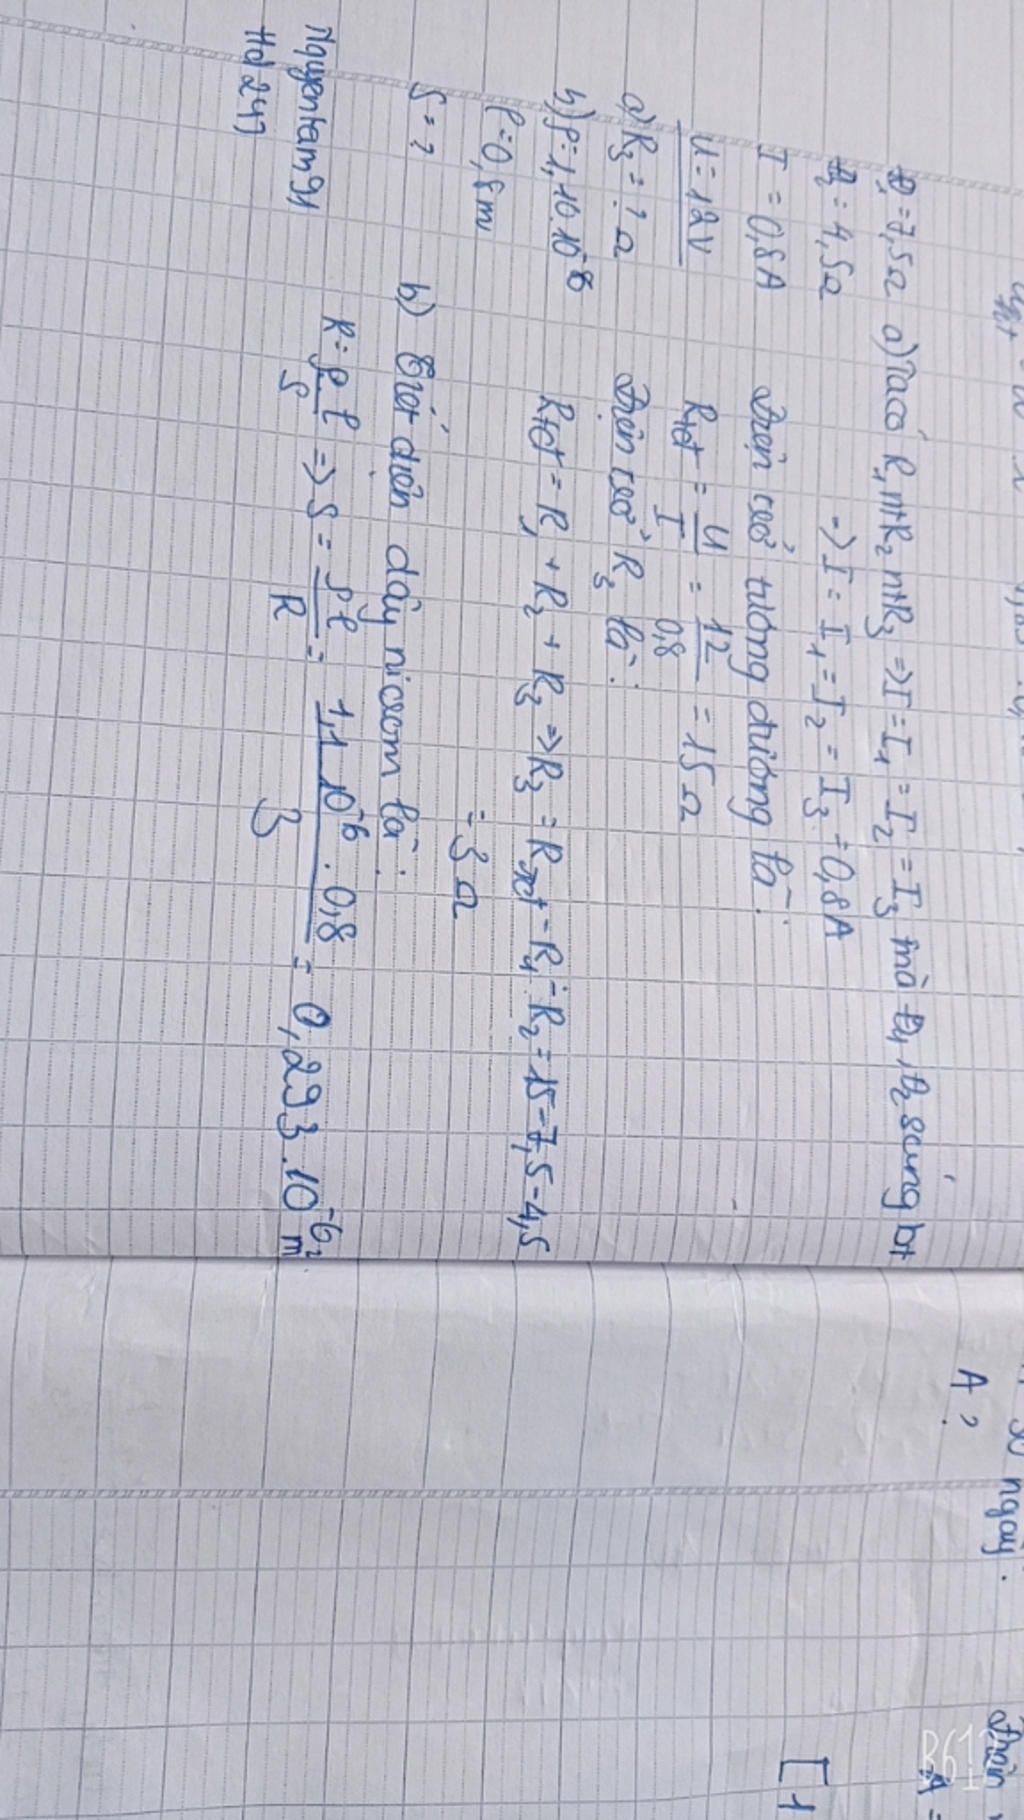 Đ₁ = 7,5Ω
Đ₂ = 4,5Ω
I = 0,8A
U = 12V
a) R₃ = ? Ω
b) ρ = 1,10.10⁻⁶
l = 0,8m
S = ?
a) Ta có R₁ nt R₂ nt R₃ => I = I₁ = I₂ = I₃ mà Đ₁, Đ₂ sáng bt
=> I = I₁ = I₂ = I₃ = 0,8A
Điện trở tương đương là:
Rtđ = U/I = 12/0,8 = 15Ω
Điện trở R₃ là:
Rtđ = R₁ + R₂ + R₃ => R₃ = Rtđ - R₁ - R₂ = 15 - 7,5 - 4,5
= 3Ω
b) Tiết diện dây nicrom là:
R = ρl/S => S = ρl/R = 1,1.10⁻⁶ . 0,8/3 = 0,293.10⁻⁶ m².
Nguyentam91
Hd 247
ngày.
A ?
Điện
A =
[1
B612